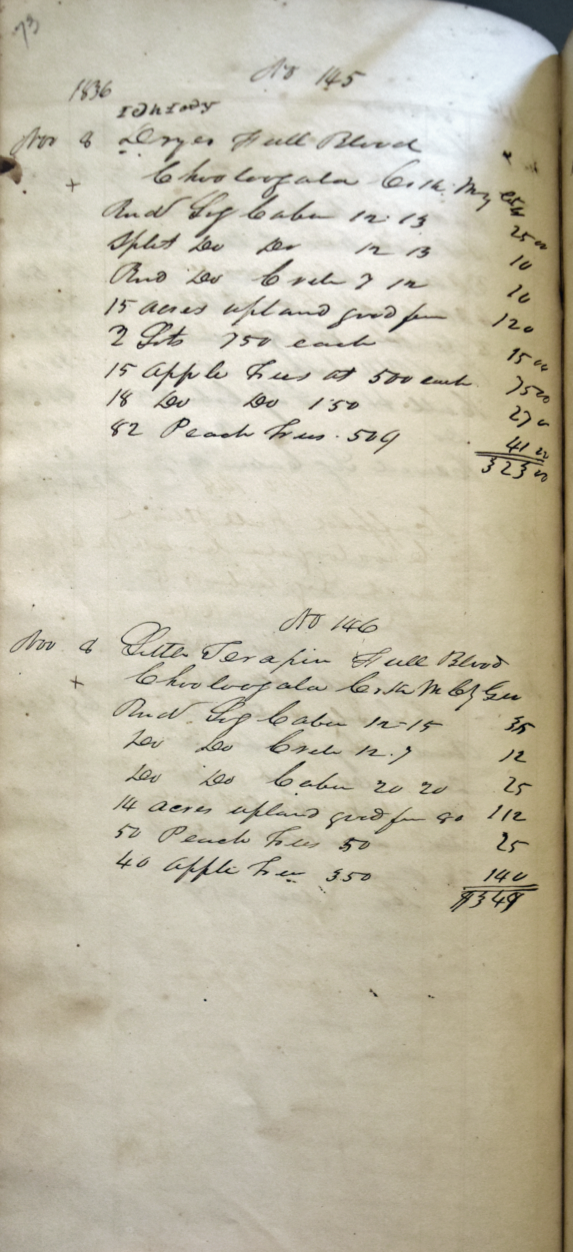 73
No 145
1836
Nov 8 Dryer Full Blood
+ Chooloogala Crk
Rnd Log Cabin 12-13 2500
Split Do Do 12 13 10
Rnd Do Crib 7 12 10
15 acres upland good fen 120
2 Lots 750 each 1500
15 Apple Trees at 500 each 7500
18 Do Do 150 270
82 Peach Trees 50 4100
32300
No 146
Nov 8 Little Terapin Full Blood
+ Chooloogala Crk M Cty Geo
Rnd Log Cabin 12-15 35
Do Do Crib 12.7 12
Do Do Cabin 20 20 25
14 acres upland good fen 80 112
50 Peach Trees 50 25
40 Apple Trees 350 140
$349